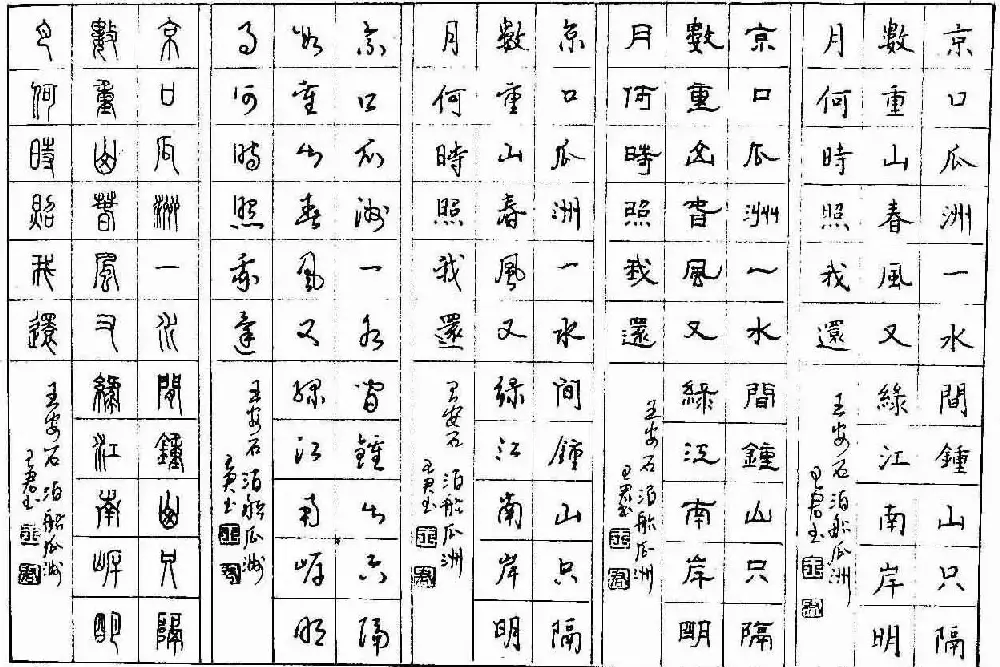 京口瓜洲一水間鍾山只隔
數重山春風又綠江南岸明
月何時照我還
王安石 泊船瓜洲
王君書
京口瓜洲一水間鍾山只隔
數重山春風又綠江南岸明
月何時照我還
王安石 泊船瓜洲
京口瓜洲一水间鍾山只隔
數重山春風又綠江南岸明
月何時照我還
王安石 泊船瓜洲
京口瓜洲一水間鍾山只隔
數重山春風又綠江南岸明
月何時照我還
王安石 泊船瓜洲
京口瓜洲一水間鍾山只隔
數重山春風又綠江南岸明
月何時照我還
王安石 泊船瓜洲